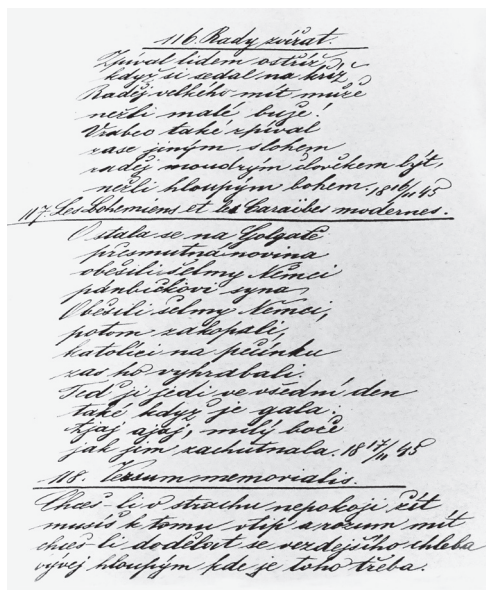 116. Rady zvířat.
Zpíval lidem ostříž
když si sedal na kříž
Raděj velkého mít muže
nežli malé buje!
Vrabec také zpíval
zase jiným slohem
raděj moudrým člověkem být,
nežli hloupým bohem. 18 16/11 45
117. Les Bohemiens et les Caraïbes modernes.
O stala se na Golgatě
přesmutná novina
oběsili šelmy Němci
pánbíčkovi syna,
Oběsili šelmy Němci,
potom zakopali,
katolíci na pečínku
zas ho vyhrabali.
Teď ji jedí ve všední den
také když je gala.
Ajaj ajaj, milý bože
jak jim zachutnala. 18 17/11 45
118. Versum memorialis.
Chceš-li v strachu nepokoji žít
musíš k tomu vtip a rozum mít
chceš li dodělat se vezdejšího chleba
vývej hloupým kde je toho třeba.